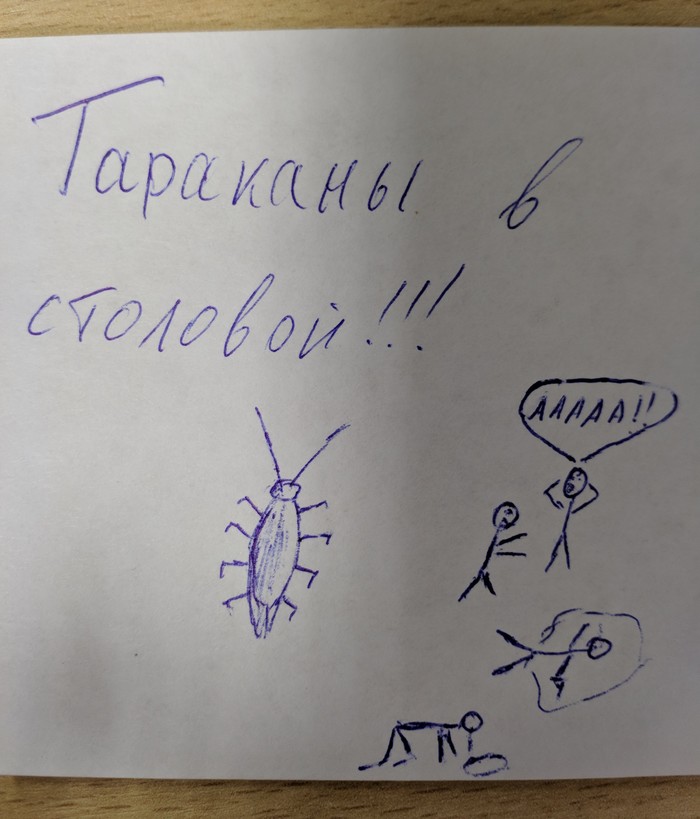 Тараканы в
столовой!!!
ААААА!!